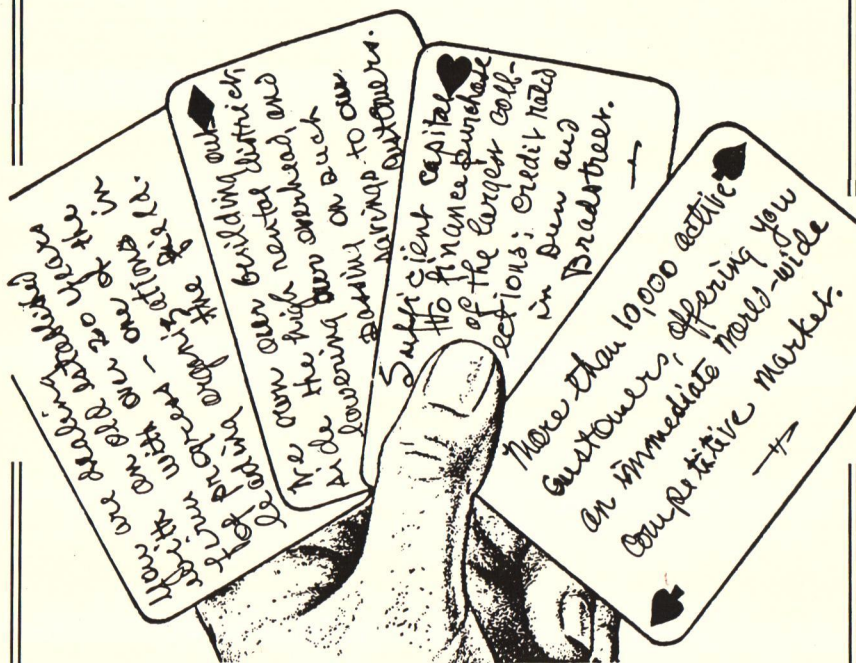 You are dealing
with an old established
firm with over 20 years
of progress – one of the
leading organizations in
the field.
We own our building out-
side the high rental district,
lowering our overhead, and
passing on such
savings to our
customers.
Sufficient capital
to finance purchase
of the largest coll-
ections; credit rated
in Dun and
Bradstreet.
More than 10,000 active
customers, offering you
an immediate world-wide
competitive market.